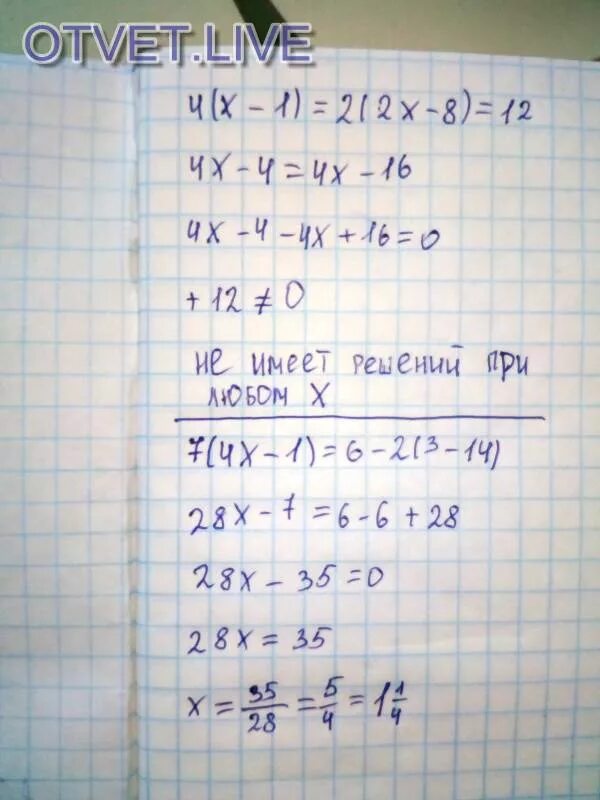 OTVET.LIVE
4(x - 1) = 2(2x - 8) = 12
4x - 4 = 4x - 16
4x - 4 - 4x + 16 = 0
+ 12 ≠ 0
не имеет решений при
любом x
7(4x - 1) = 6 - 2(3 - 14)
28x - 7 = 6 - 6 + 28
28x - 35 = 0
28x = 35
x = 35/28 = 5/4 = 1 1/4